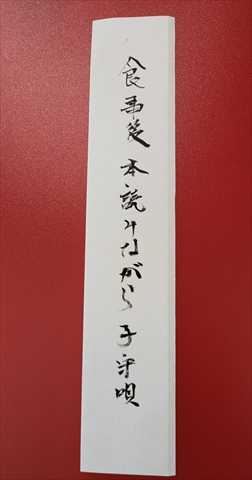 食事後本読みながら子守唄